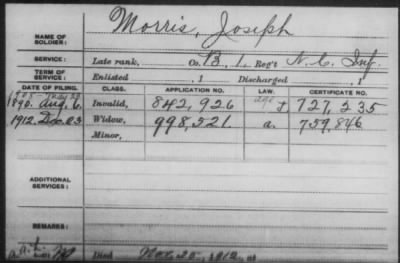 NAME OF SOLDIER: Morris, Joseph
SERVICE: Late rank, Co. B, 1, Reg't N. C. Inf.
TERM OF SERVICE: Enlisted , 1 Discharged , 1
DATE OF FILING. CLASS. APPLICATION NO. LAW. CERTIFICATE NO.
1890. Aug. 6. Invalid, 842,926 727,335
1912. Dec. 23 Widow, 998,521. a. 759,846
Minor,
ADDITIONAL SERVICES:
REMARKS:
Died Nov. 25, 1912, at